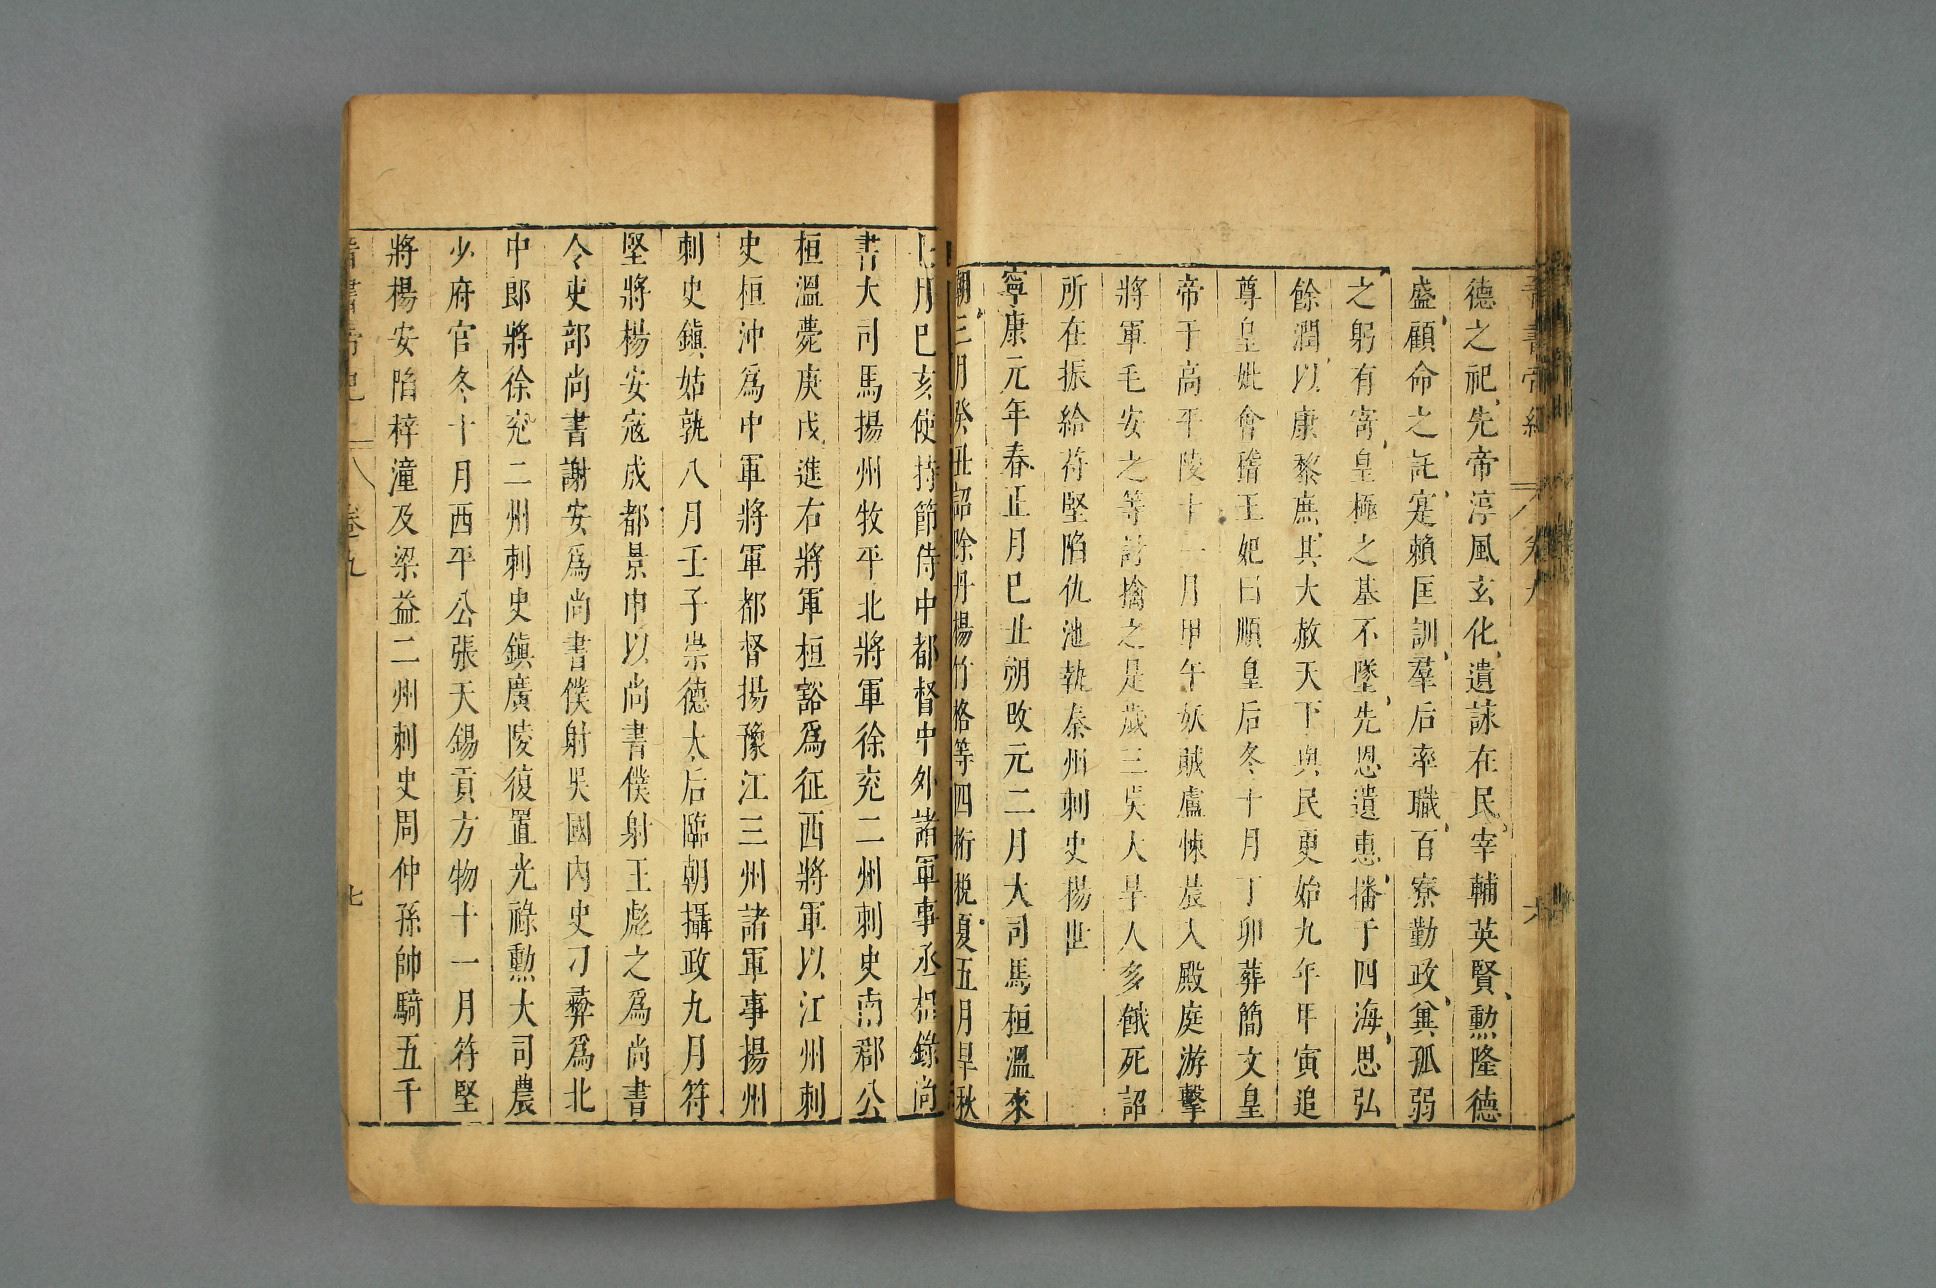 晉書帝紀 卷九 六
德之祀先帝淳風玄化遺詠在民宰輔英賢勲隆德
盛顧命之託寔賴匡訓羣后率職百寮勤政兾孤弱
之躬有寄皇極之基不墜先恩遺惠播于四海思弘
餘潤以康黎庶其大赦天下與民更始九年甲寅追
尊皇妣會稽王妃曰順皇后冬十月丁卯葬簡文皇
帝于高平陵十一月甲午妖賊盧悚晨入殿庭游擊
將軍毛安之等討擒之是歲三吳大旱人多餓死詔
所在振給苻堅陷仇池執秦州刺史楊世
寧康元年春正月巳丑朔改元二月大司馬桓溫來
朝三月癸丑詔除丹楊竹格等四桁稅夏五月旱秋
七月巳亥使持節侍中都督中外諸軍事丞相錄尚
書大司馬揚州牧平北將軍徐兖二州刺史南郡公
桓溫薨庚戌進右將軍桓豁爲征西將軍以江州刺
史桓沖爲中軍將軍都督揚豫江三州諸軍事揚州
刺史鎮姑孰八月壬子崇德太后臨朝攝政九月苻
堅將楊安寇成都景申以尚書僕射王彪之爲尚書
令吏部尚書謝安爲尚書僕射吳國內史刁彝爲北
中郎將徐兖二州刺史鎮廣陵復置光祿勲大司農
少府官冬十月西平公張天錫貢方物十一月苻堅
將楊安陷梓潼及梁益二州刺史周仲孫帥騎五千
晉書帝紀 卷九 七